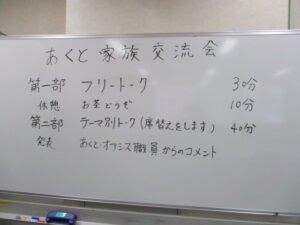 あくと 家族 交流会
第一部 フリートーク 30分
休憩 お茶どうぞ 10分
第二部 テーマ別トーク(席替えをします) 40分
発表 あくと・オフシス職員からのコメント